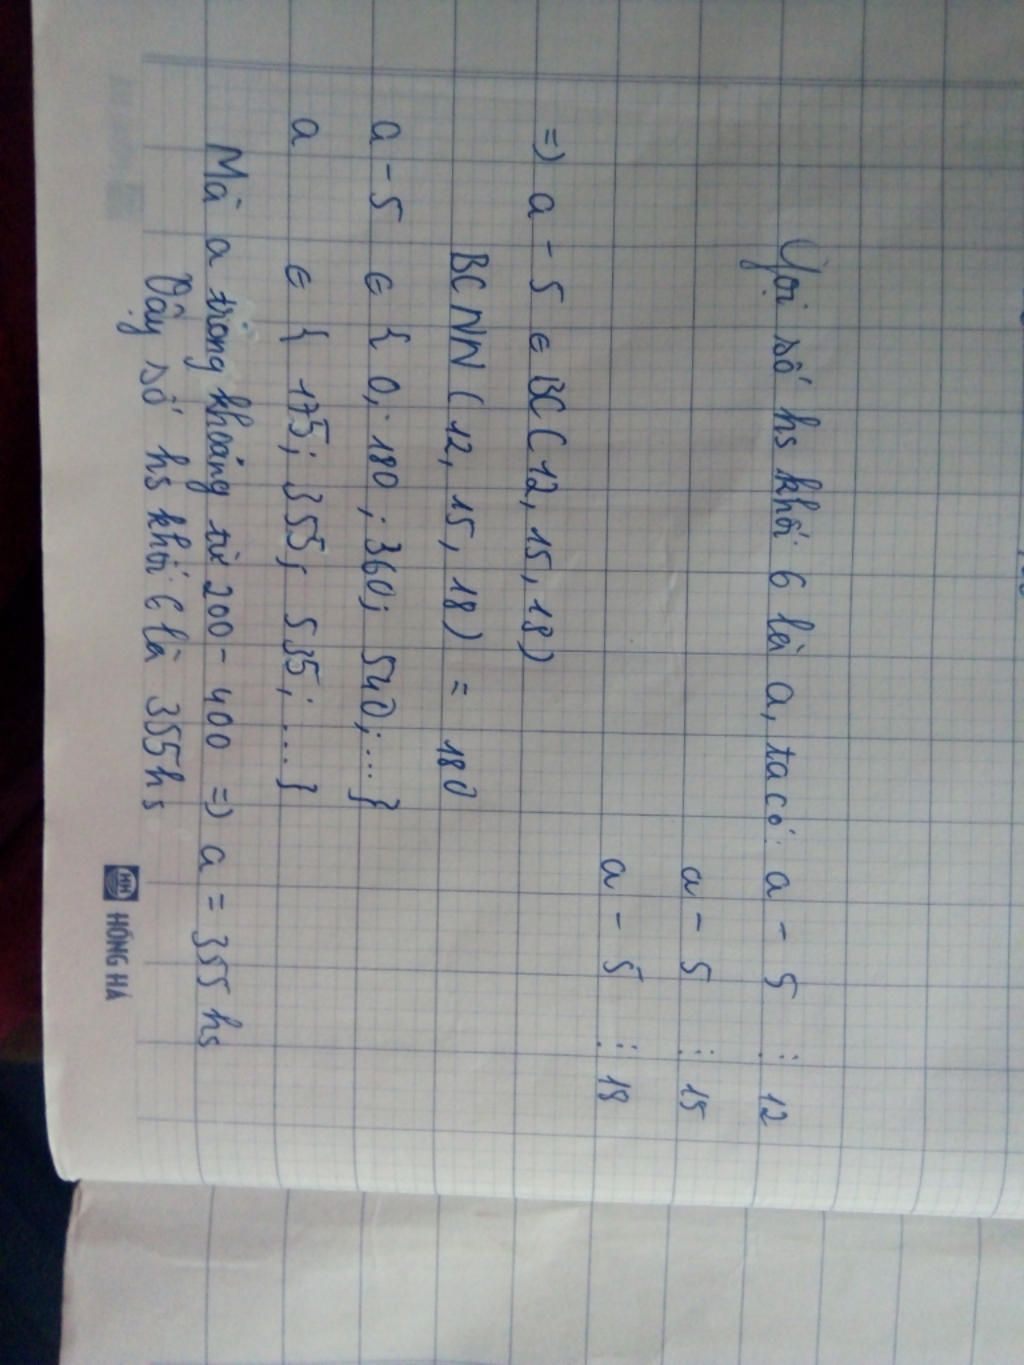 Gọi số hs khối 6 là a, ta có: a - 5 ⋮ 12
a - 5 ⋮ 15
a - 5 ⋮ 18
=) a - 5 ∈ BC (12, 15, 18)
BCNN (12, 15, 18) = 180
a - 5 ∈ { 0; 180; 360; 540; ... }
a ∈ { 175; 355; 535; ... }
Mà a trong khoảng từ 200 - 400 =) a = 355 hs
Vậy số hs khối 6 là 355 hs
HỒNG HÀ